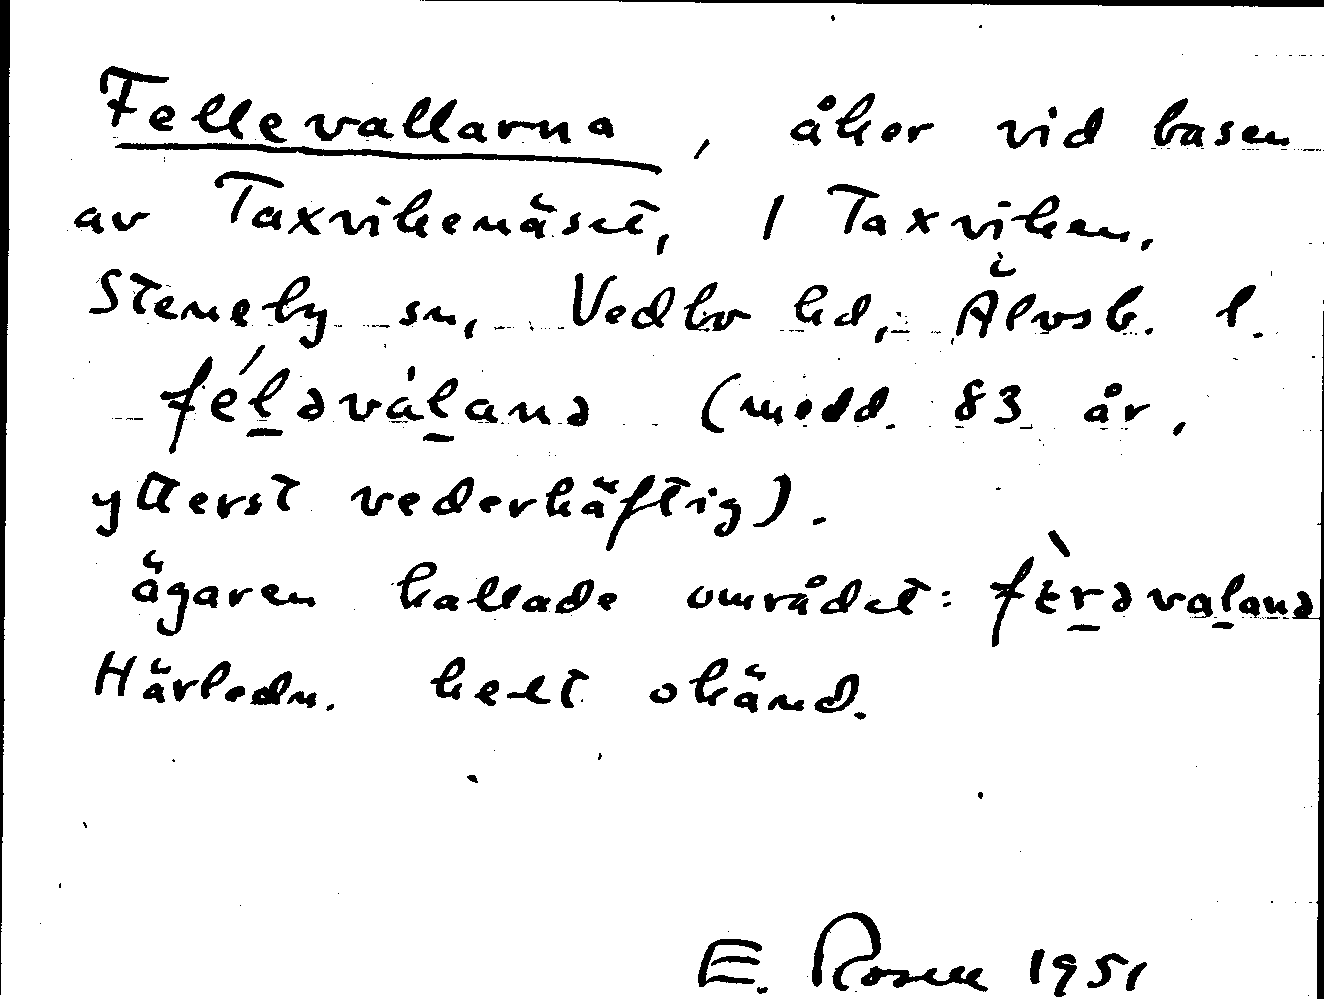 Fellevallarna, åker vid basen
av Taxvikenäset, 1 Taxviken,
Steneby sn, Vedbo hd, Älvsb. l.
fél̠əvàl̠anə (medd. 83 år,
ytterst vederhäftig).
ägaren kallade området: fɛ̀r̠əval̠anə
Härledn. helt okänd.
E. Rosell 1951